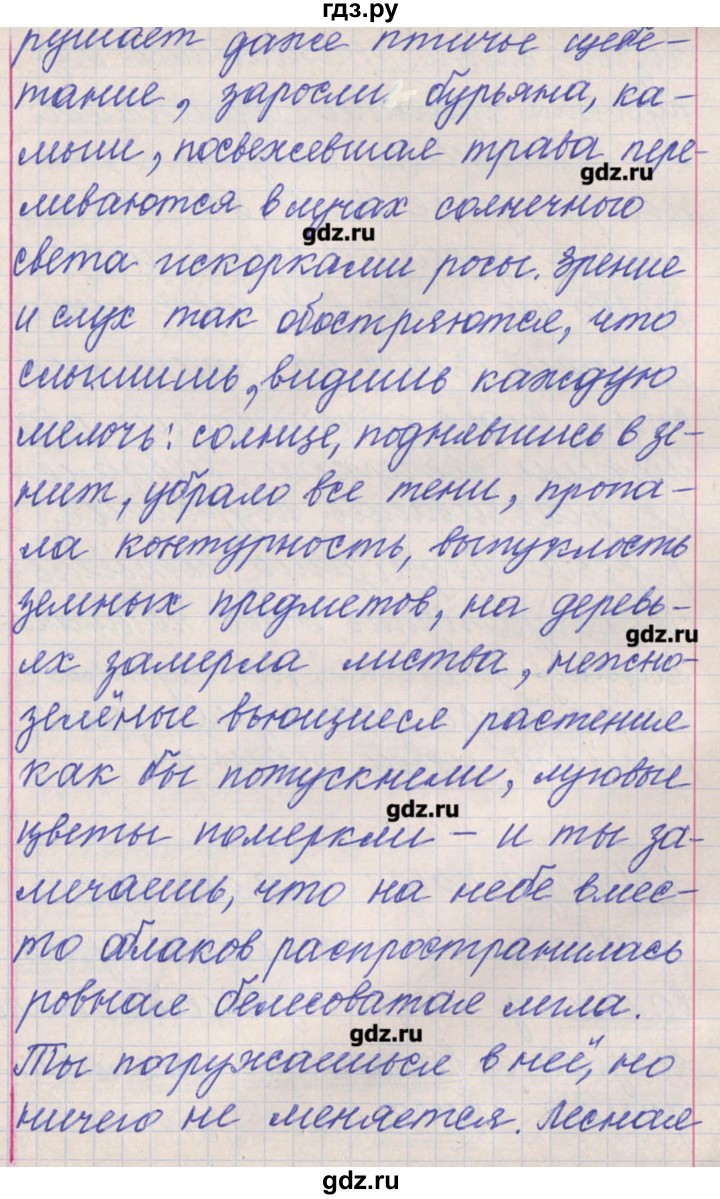 гдз.ру
рушает даже птичье щебе-
тание, заросли бурьяна, ка-
мыши, посвежевшая трава пере-
gdz.ru
ливаются в лучах солнечного
gdz.ru
света искорками росы. Зрение
и слух так обостряются, что
слышишь, видишь каждую
мелочь: солнце, поднявшись в зе-
нит, убрало все тени, пропа-
ла контурность, выпуклость
земных предметов, на деревь-
gdz.ru
ях замерла листва, нежно-
зелёные вьющиеся растение
как бы потускнели, луговые
gdz.ru
цветы померкли – и ты за-
мечаешь, что на небе вмес-
то облаков распространилась
ровная белесоватая мгла.
gdz.ru
Ты погружаешься в неё, но
ничего не меняется. Лесная
gdz.ru